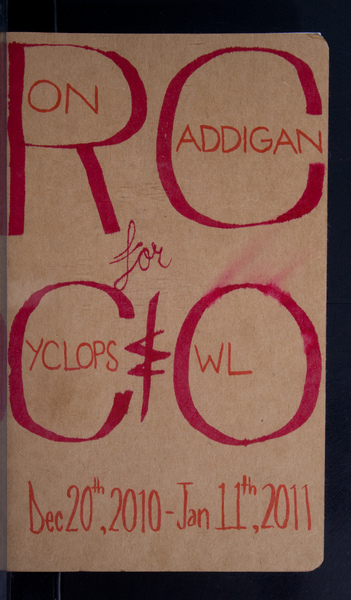 RON CADDIGAN
for
CYCLOPS & OWL
Dec 20th, 2010 - Jan 11th, 2011